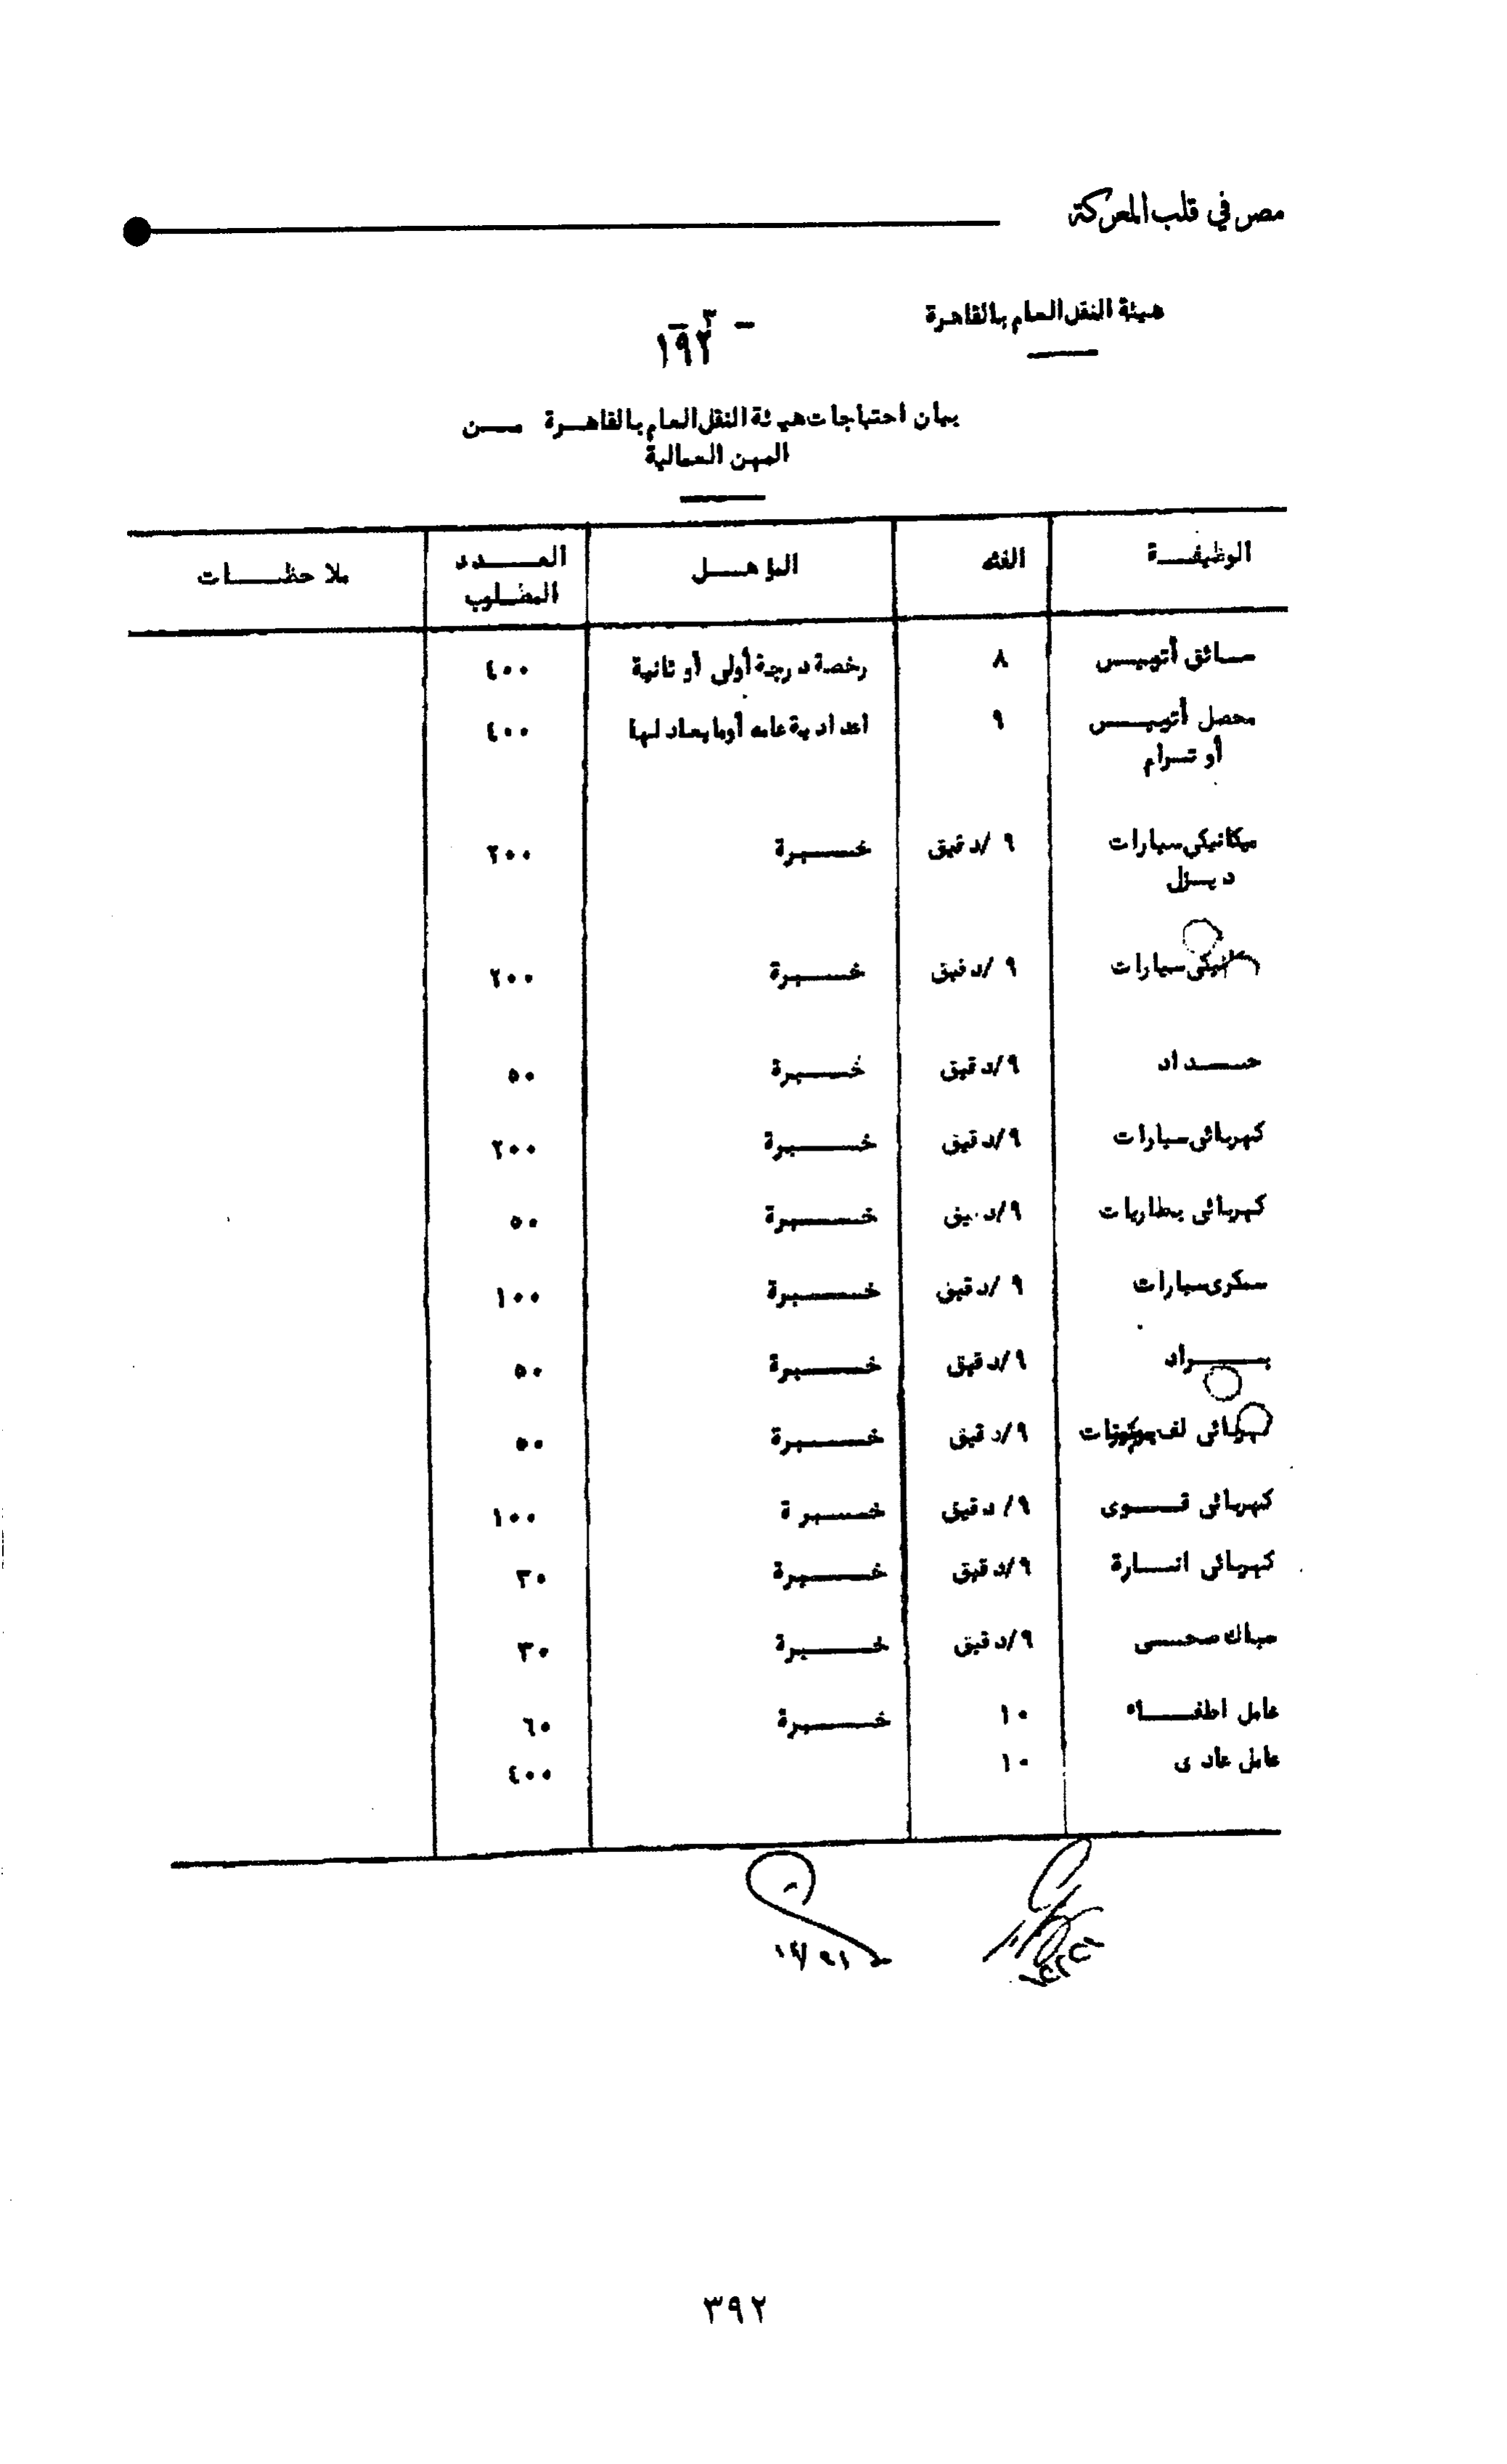 مصر في قلب المعركة
هيئة النقل العام بالقاهرة
- ٣ -
١٩٢
بيان احتياجات هيئة النقل العام بالقاهــرة مــن
المهن العمالية
الوظيفــة الفئه المؤهــل العــدد المطلوب ملاحظــات
سائق أتوبيس ٨ رخصة درجة أولى أو ثانية ٤٠٠
محصل أتوبيس ٩ اعدادية عامه أو ما يعادلها ٤٠٠
أو تــرام
ميكانيكى سيارات ٩/دقيق خــبرة ٢٠٠
ديــزل
ميكانيكى سيارات ٩/دقيق خــبرة ٢٠٠
حــداد ٩/دقيق خــبرة ٥٠
كهربائى سيارات ٩/دقيق خــبرة ٢٠٠
كهربائى بطاريات ٩/دقيق خــبرة ٥٠
سمكرى سيارات ٩/دقيق خــبرة ١٠٠
بــراد ٩/دقيق خــبرة ٥٠
كهربائى لف ٩/دقيق خــبرة ٥٠
كهربائى قــوى ٩/دقيق خــبرة ١٠٠
كهربائى انــارة ٩/دقيق خــبرة ٣٠
سباك صحــى ٩/دقيق خــبرة ٣٠
عامل اطفــاء ١٠ خــبرة ٦٠
عامل عادى ١٠ ٤٠٠
٣٩٢